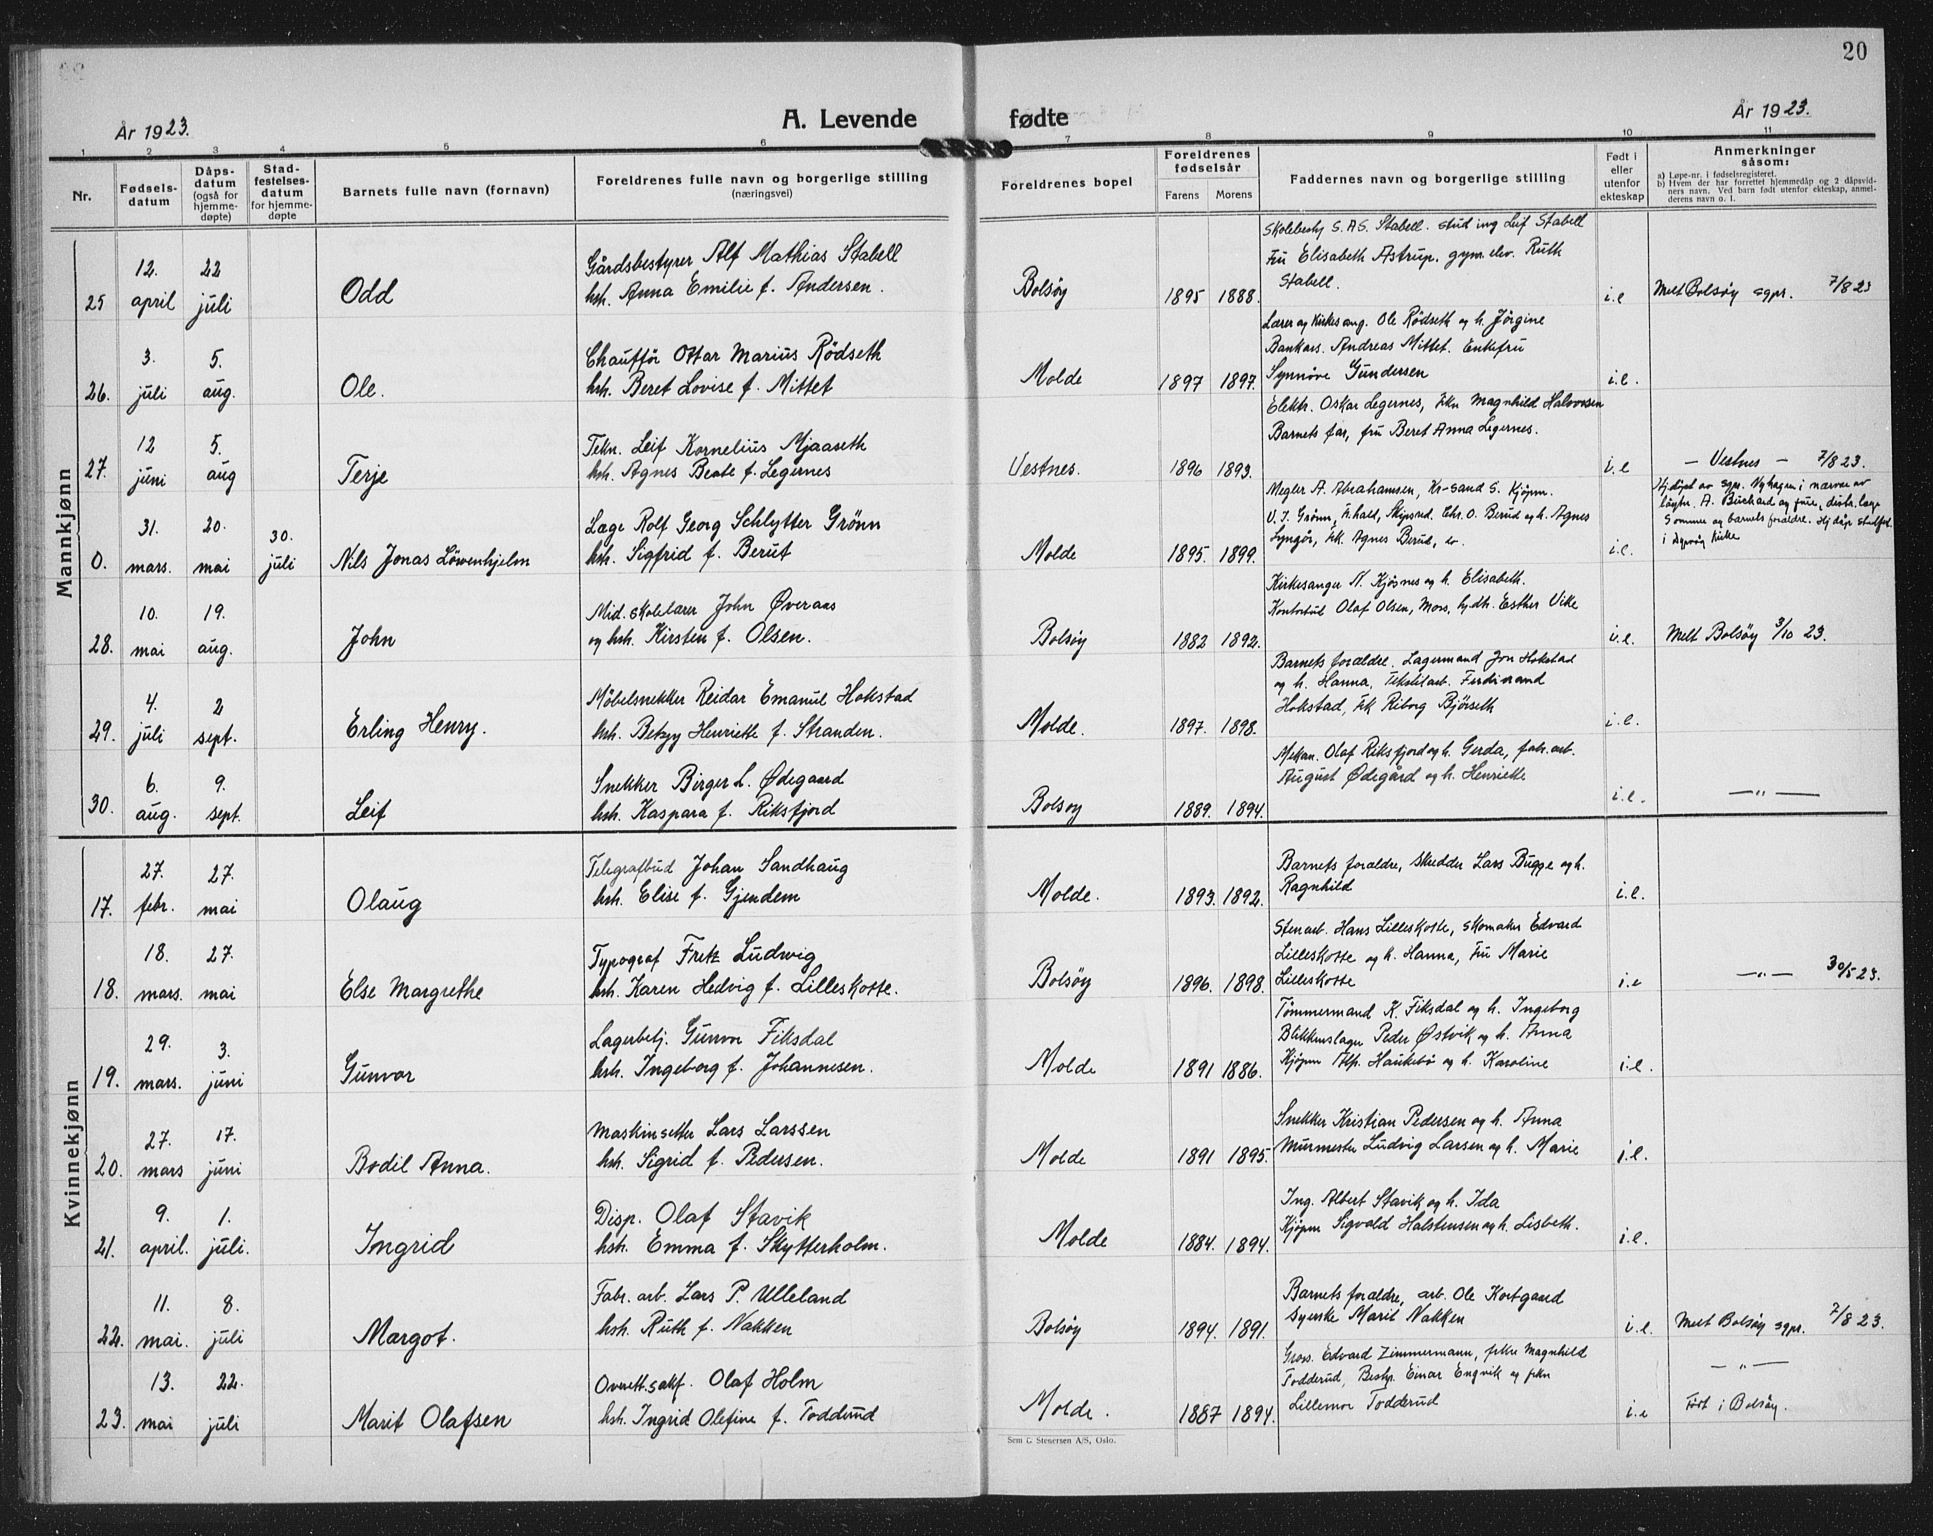 20
År 1923.
A. Levende fødte
År 1923.
1 2 3 4 5 6 7 8 9 10 11
Nr.
Fødsels-
datum
Dåps-
datum
(også for
hjemme-
døpte)
Stad-
festelses-
datum
for hjemme-
døpte
Barnets fulle navn (fornavn)
Foreldrenes fulle navn og borgerlige stilling
(næringsvei)
Foreldrenes bopel
Foreldrenes
fødselsår
Farens Morens
Faddernes navn og borgerlige stilling
Født i
eller
utenfor
ekteskap
Anmerkninger
såsom:
a) Løpe-nr. i fødselsregisteret.
b) Hvem der har forrettet hjemmedåp og 2 dåpsvid-
ners navn. Ved barn født utenfor ekteskap, anmel-
derens navn o. l.
Mannkjønn
25
12.
april
22
juli
Odd
Gårdsbestyrer Alf Mathias Stabell
hsh. Anna Emilie f. Andersen.
Bolsøy
1895 1888.
Skolebesty S. A S. Stabell. stud ing Leif Stabell
Fru Elisabeth Astrup. gym. elev. Ruth
Stabell.
i.e
Melt Bolsøy sgpr. 7/8 23
26.
3.
juli
5.
aug.
Ole.
Chauffør Ottar Marius Rödseth
hsh. Beret Lovise f. Mittet
Molde
1897 1897.
Lærer og Kirkesang. Ole Rødseth og h. Jørgine
Bankass. Andreas Mittet. Enkefru
Synnøve Gundersen
i.e.
27.
12
juni
5.
aug
Terje
Tekn. Leif Kornelius Mjaaseth
hsh. Agnes Beate f. Legernes
Vestnes.
1896 1893.
Elektr. Oskar Legernes, frkn Magnhild Halvorsen
Barnets far, fru Beret Anna Legernes.
i.e
— Vestnes — 7/8 23.
0.
31.
mars.
20.
mai
30.
juli
Nils Jonas Löwenhjelm
Læge Rolf Georg Schlytter Grönn
hsh. Sigfrid f. Berut
Molde
1895. 1899.
Megler A. Abrahamsen, Kr-sand S. Kjøpm.
V. J. Grønn, Skipsred. Chr. O. Berud og h. Agnes
Lyngør, frk. Agnes Berud,
i.e.
Hj.døpt av sgpr. Nyhagen i nærvær av
A. Buchard og frue, distr.læge
Sommer og barnets forældre. Hj dåp stadfest
i kirke
28.
10.
mai
19.
aug.
John
Mid. skolelærer John Øveraas
og hsh. Kirsten f. Olsen.
Bolsøy
1882 1892.
Kirkesanger N. Kjøsnes og h. Elisabeth.
Kontorful Olaf Olsen, Moss, hj.dh. Esther Vike
i.e.
Melt Bolsøy 3/10 23.
29.
4.
juli
2
sept.
Erling Henry.
Møbelsnekker Reidar Emanuel Hokstad
hsh. Betzy Henriette f. Stranden.
Molde.
1897. 1898.
Barnets forældre. Lagermand Jon Hokstad
og h. Hanna, Tekstilarb. Ferdinand
Hokstad, frk Riborg Bjørseth
i.e.
30.
6.
aug.
9.
sept.
Leif
Snekker Birger L. Ødegaard
hsh. Kaspara f. Riksfjord
Bolsoy
1889. 1894.
Mekan. Olaf Riksfjord og h. Gerda, fabr.arb.
August Ødegård og h. Henriette
i.e.
— „ —
Kvinnekjønn
17.
27.
febr.
27.
mai
Olaug
Telegrafbud Johan Sandhaug
hsh. Elise f. Gjendem
Molde.
1893. 1892.
Barnets forældre, skredder Lars Bugge og h.
Ragnhild
i.e.
18.
18.
mars.
27.
mai
Else Margrethe
Typograf Fretz Ludwig
hsh. Karen Hedvig f. Lilleskotte.
Bolsøy
1896. 1898.
Stenarb. Hans Lilleskotte, skomaker Edvard
Lilleskotte og h. Hanna, Fru Marie
Lilleskotte
i.e
— „ — 30/5 23.
19.
29.
mars.
3.
juni
Gunvor
Lagerbetj. Gunvor Fiksdal
hsh. Ingeborg f. Johannesen.
Molde
1891 1886.
Tömmermand K. Fiksdal og h. Ingeborg
Blikkenslager Peder Østvik og h. Anna
Kjøpm Thp. Haukebø og h. Karoline
i.e.
20.
27.
mars
17.
juni
Bodil Anna.
Maskinsetter Lars Larssen
hsh. Sigrid f. Pedersen.
Molde
1891 1895.
Snekker Kristian Pedersen og h. Anna
Murmester Ludvig Larsen og h. Marie
i.e.
21.
9.
april.
1.
juli.
Ingrid
Disp. Olaf Stavik
hsh. Emma f. Skytterholm.
Molde
1884. 1894.
Ing. Albert Stavik og h. Ida
Kjøpm Sigvald Halstensen og h. Lisbeth.
i.e.
22.
11.
mai.
8.
juli
Margot.
Fabr. arb. Lars P. Ulleland
hsh. Ruth f. Nakken
Bolsøy
1894. 1891.
Barnets forældre, arb. Ole Kortgaard
syerske Marit Nakken
i.e.
Melt Bolsøy sgpr. 7/8 23.
23.
13.
mai
22.
juli
Marit Olafsen
Overett.sakf. Olaf Holm
hsh. Ingrid Olefine f. Todderud
Molde.
1887 1894.
Gross. Edvard Zimmermann, frkn Magnhild
Todderud, Bestyr. Einar Engvik og frkn
Lillemor Todderud
i.e
— „ —
Født i Bolsøy.
Sem & Stenersen A/S, Oslo.